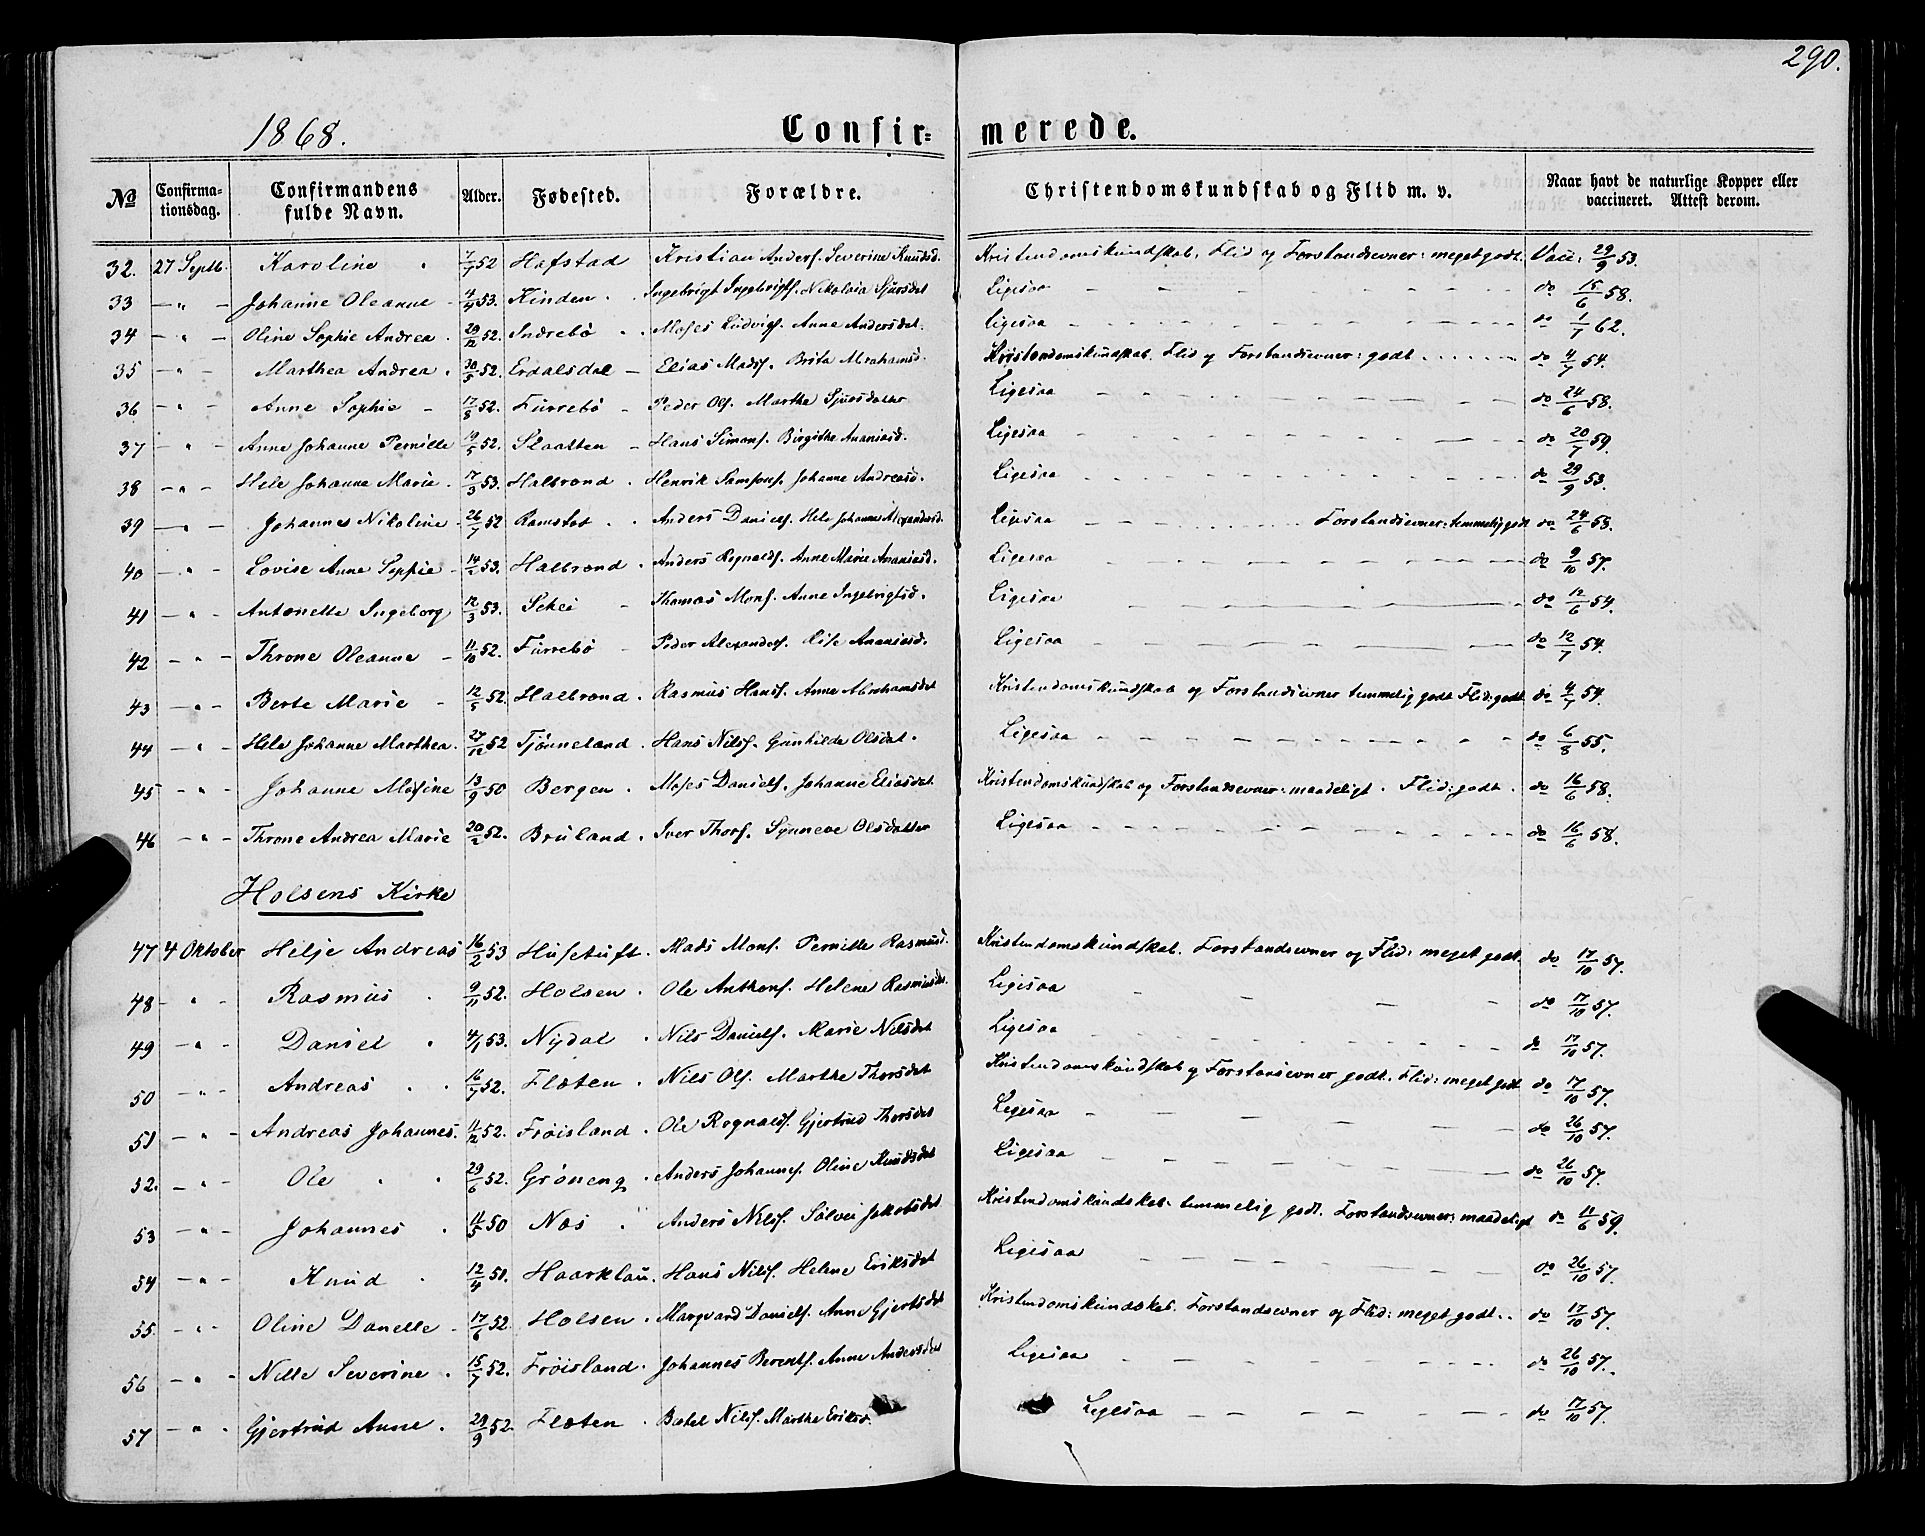 290.
1868. Confir= merede.
№ Confirma-tionsdag. Confirmandens fulde Navn. Alder. Fødested. Forældre. Christendomskundskab og Flid m. v. Naar havt de naturlige Kopper eller vaccineret. Attest derom.
32. 27 Septb. Karoline 7/7 52 Hafstad Kristian Anders. Severine Knudsd. Kristendomskundskab, Flid og Forstandsevner: meget godt. Vacc. 29/9 53.
33 — " — Johanne Oleanne 4/4 53. Kinden Ingebrigt Ingebrigts. Nikolaia Sjursdt Ligesaa do 15/6 58.
34 — " — Oline Sophie Andrea 29/12 52. Indrebø Moses Ludvigs. Anne Andersdat. Ligesaa do 1/7 62.
35 — " — Marthea Andrea 30/5 52. Erdalsdal Elias Mads. Brita Abrahamsd. Kristendomskundskab. Flid og Forstandsevner: godt do 4/7 54.
36 — " — Anne Sophie 17/8 52. Furrebø Peder Ols. Marthe Sjursdatter Ligesaa do 24/6 58.
37 — " — Anne Johanne Pernille 19/5 52. Slaatten Hans Simons. Birgithe Ananiasd. Ligesaa do 20/7 59.
38 — " — Hele Johanne Marie 17/3 53. Halbrend Henrik Samsons. Johanne Andreasd. Ligesaa do 29/9 53.
39 — " — Johannes Nikoline 26/7 52 Ramstad Anders Daniels. Hele Johanne Alexandersd. Ligesaa Forstandsevner: temmelig godt do 24/6 58.
40 — " — Lovise Anne Sophie 14/2 53. Halbrend Anders Rognalds. Anne Marie Ananiasd. Ligesaa do 9/10 57.
41 — " — Antonette Ingeborg 12/3 53. Schei Thomas Mons. Anne Ingebrigtsd. Ligesaa do 12/6 54.
42 — " — Throne Oleanne 11/10 52. Furrebø Peder Alexanders. Lise Ananiasd. Ligesaa do 12/7 54.
43 — " — Berte Marie 12/5 52. Halbrend Rasmus Hans. Anne Abrahamsdt Kristendomskundskab og Forstandsevner temmelig godt Flid: godt do 4/7 54.
44 — " — Hele Johanne Marthea 27/12 52 Tjønneland Hans Nils. Gunhilde Olsdat. Ligesaa do 6/8 55.
45 — " — Johanne Mosine 13/9 50 Bergen Moses Daniels. Johanne Eliasdat. Kristendomskundskab og Forstandsevner: maadeligt. Flid: godt do 16/6 58.
46 — " — Throne Andrea Marie 20/2 52. Bruland Iver Thors. Synneve Olsdatter Ligesaa do 16/6 58.
Holsens Kirke
47 4 Oktober Helje Andreas 16/2 53 Husetuft Mads Mons. Pernille Rasmusd. Kristendomskundskab. Forstandsevner og Flid: meget godt. do 17/10 57.
48 — " — Rasmus 9/11 52. Holsen Ole Anthons. Helene Rasmusdt. Ligesaa do 17/10 57.
49 — " — Daniel 4/1 53. Nydal Nils Daniels. Marie Nilsdat Ligesaa do 17/10 57.
50 — " — Andreas 16/7 52. Flaten Nils Ols. Marthe Thorsdat Kristendomskundskab og Forstandsevner godt. Flid: meget godt do 17/10 57.
51 — " — Andreas Johannes. 11/12 52. Frøisland Ole Rognalds. Gjertrud Thorsdat Ligesaa do 26/10 57.
52. — " — Ole 29/6 52. Grøneng Anders Johannes. Oline Knudsdat Ligesaa do 26/10 57.
53 — " — Johannes 11/5 50 Nes Anders Nils. Sølvei Jakobsdat Kristendomskundskab: temmelig godt. Forstandsevner: maadeligt do 11/6 59.
54 — " — Knud 12/4 51. Haarklau Hans Nils. Helene Eriksdat Ligesaa do 26/10 57.
55 — " — Oline Danelle 17/6 52. Holsen Marqvard Daniels. Anne Gjertsdat Kristendomskundskab. Forstandsevner og Flid: meget godt. do 17/10 57.
56 — " — Nille Severine 15/7 52. Frøisland Johannes Berents. Anne Andersdat Ligesaa do 26/10 57.
57 — " — Gjertrud Anne 29/9 52. Flaten Botel Nils. Marthe Eriksd. Ligesaa do 17/10 57.